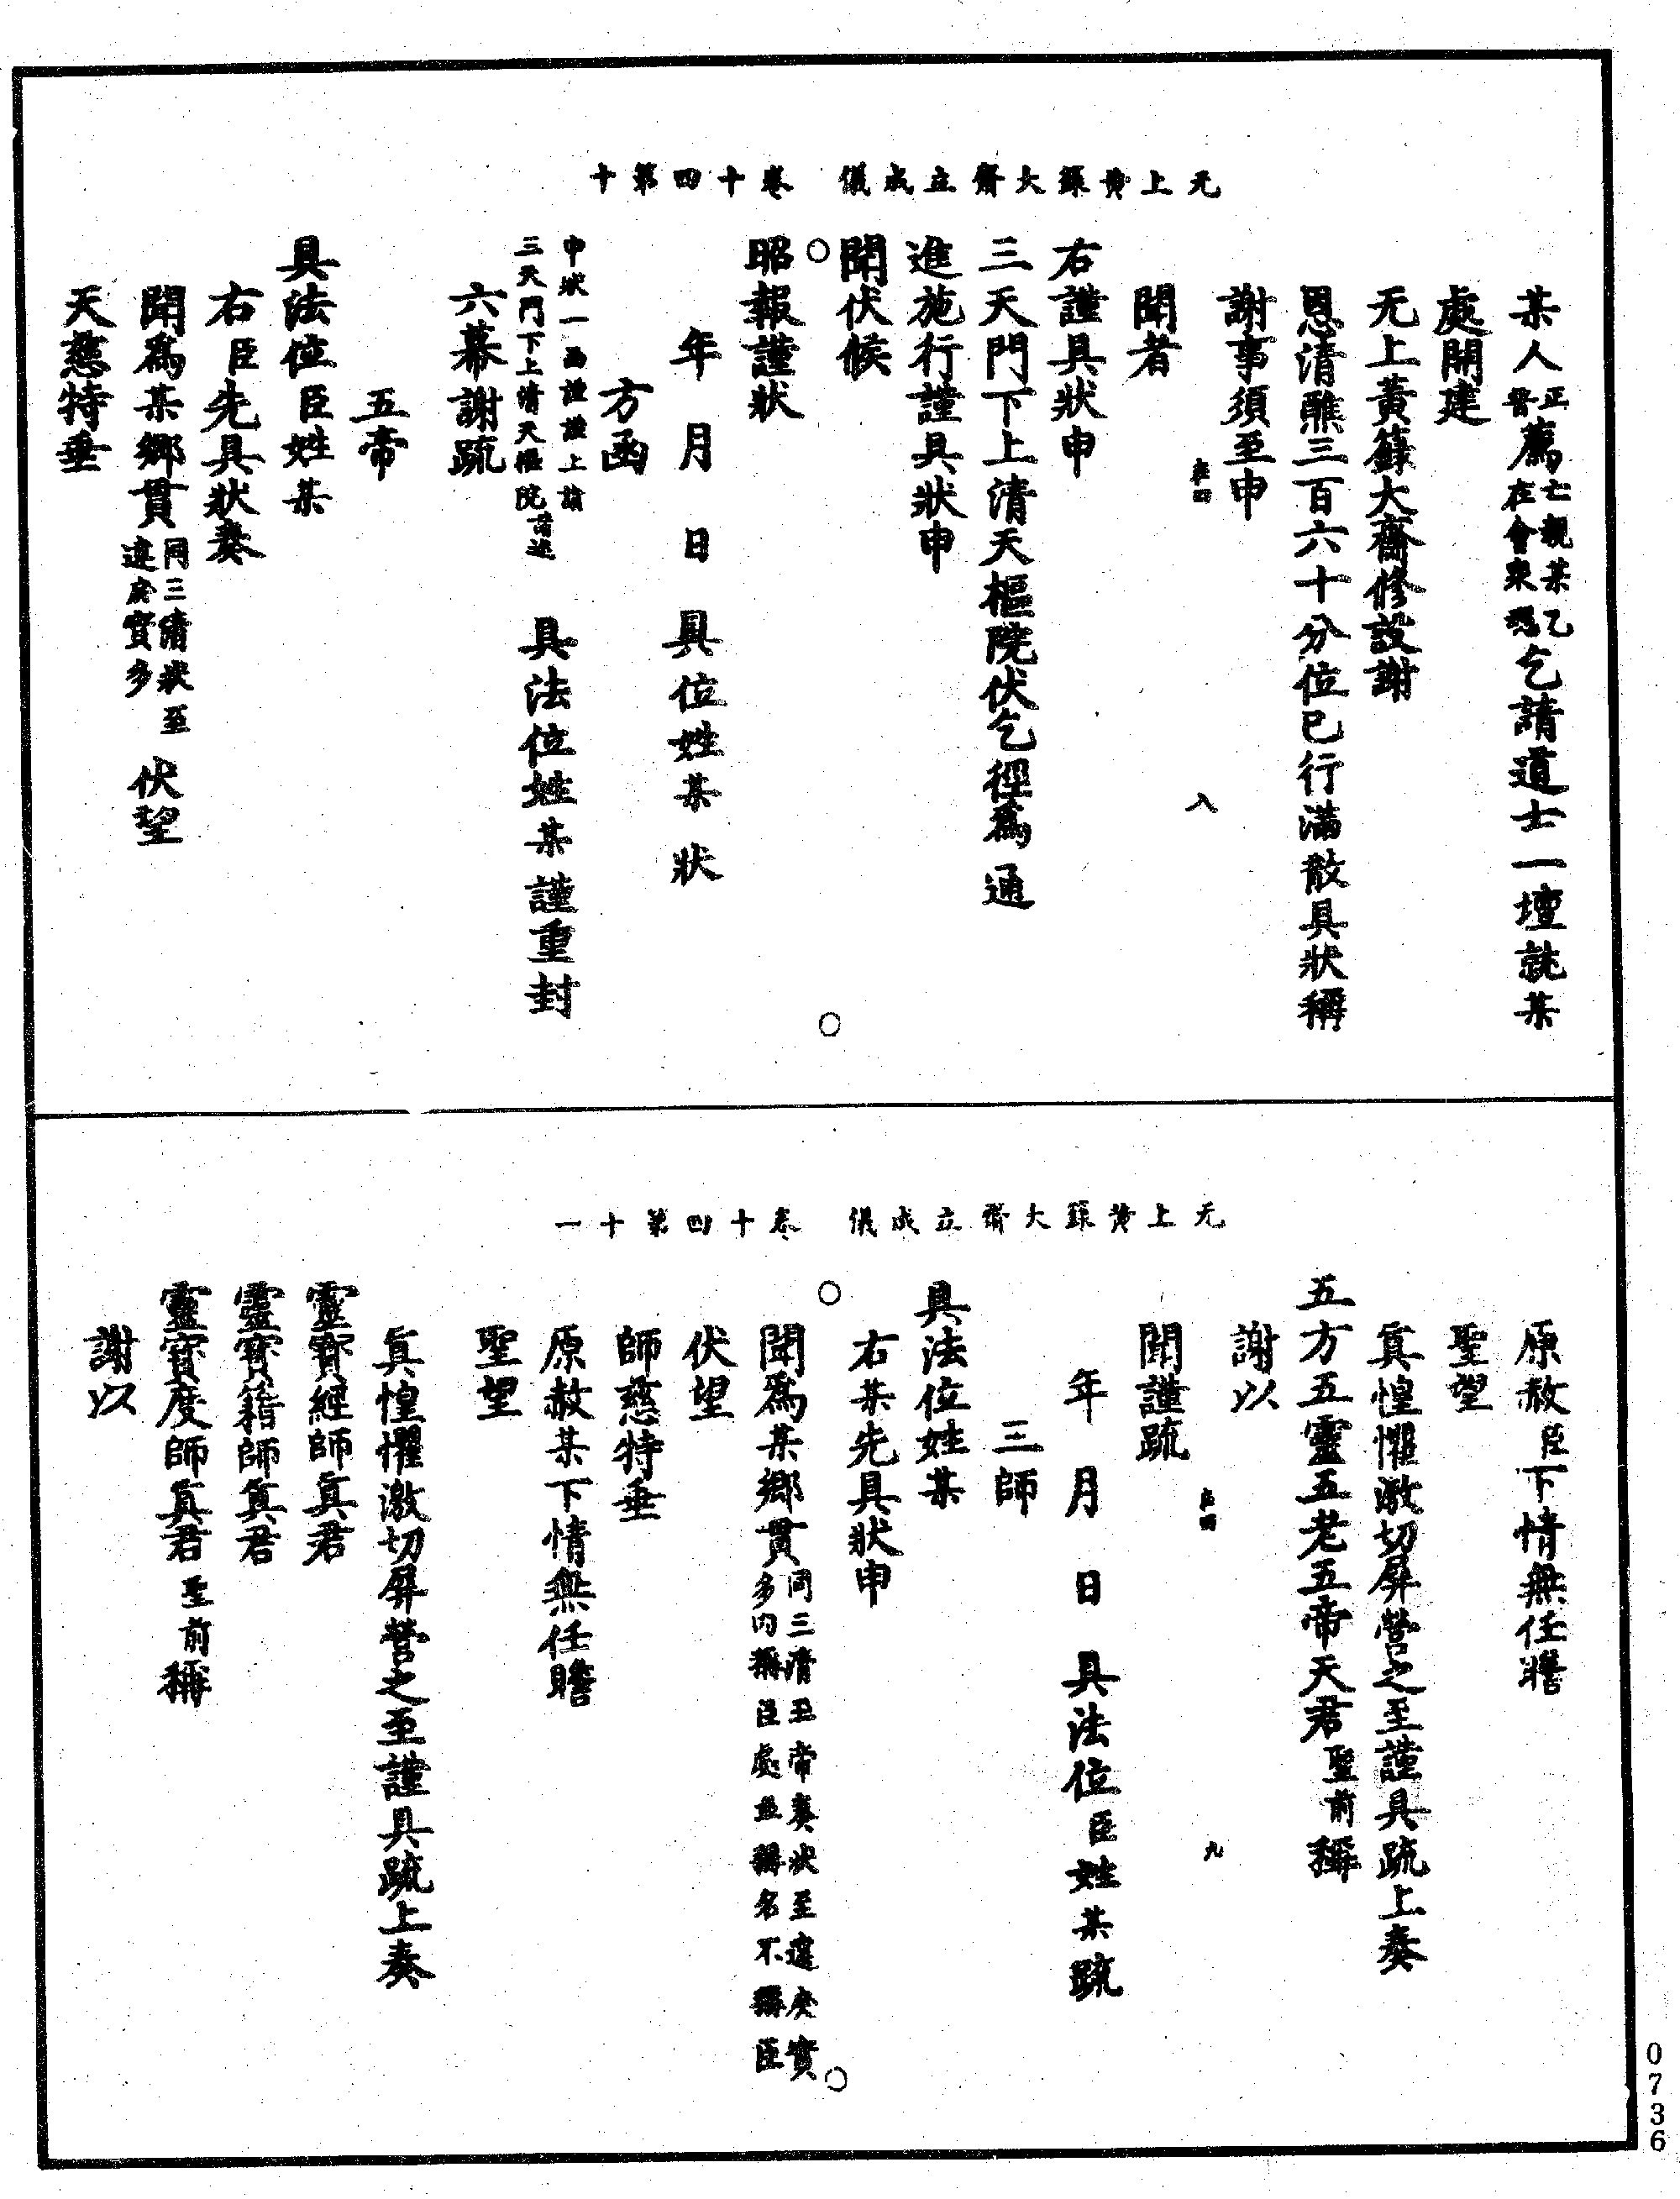 无上黃籙大齋立成儀　卷十四第十
某人正薦亡親某乙
普在會衆魂乞請道士一壇就某
處開建
无上黃籙大齋修設謝
恩清醮三百六十分位已行滿散具狀稱
謝事須至申
八
聞者
右謹具狀申
三天門下上清天樞院伏乞徑爲通
進施行謹具狀申
聞伏候
昭報謹狀
年　月　日　具位姓某狀
方函
申狀一函謹謹上請
三天門下上清天樞院　具法位姓某謹重封
六幕謝疏
五帝
具法位臣姓某
右臣先具狀奏
聞爲某鄉貫同三清狀至
違戾實多伏望
天慈特垂
无上黃籙大齋立成儀　卷十四第十一
原赦臣下情無任瞻
聖望
眞惶懼激切屏營之至謹具疏上奏
五方五靈五老五帝天君聖前稱
謝以
九
聞謹疏
年　月　日　具法位臣姓某疏
三師
具法位姓某
右某先具狀申
聞爲某鄉貫同三清五帝奏狀至違戾實
多内稱臣處並稱名不稱臣
伏望
師慈特垂
原赦某下情無任瞻
聖望
眞惶懼激切屏營之至謹具疏上奏
靈寶經師眞君
靈寶籍師眞君
靈寶度師眞君聖前稱
謝以
0736